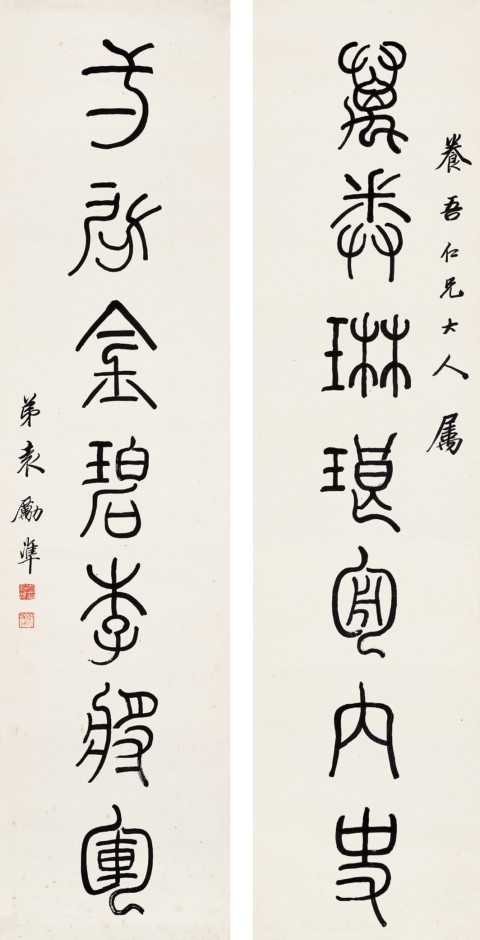 養吾仁兄大人屬
萬卷琳琅內史
方啟金碧李將軍
弟袁勵準